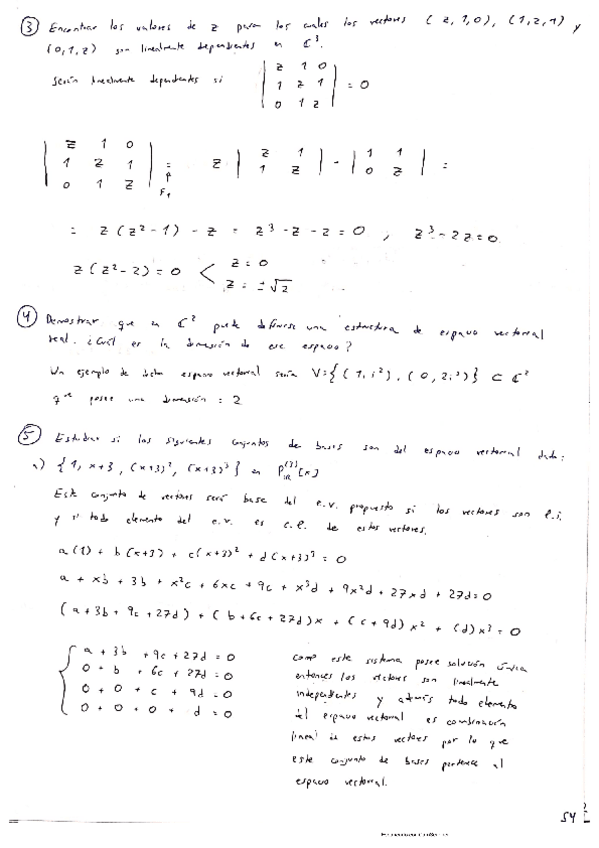 ③ Encontrar los valores de z para los cuales los vectores (z,1,0), (1,z,1) y
(0,1,z) son linealmente dependientes en ℂ³.
Serán linealmente dependientes si | z 1 0 |
| 1 z 1 | = 0
| 0 1 z |
| z 1 0 |
| 1 z 1 | = z | z 1 | - | 1 1 | =
| 0 1 z | F₁ | 1 z | | 0 z |
= z(z²-1) - z = z³-z-z=0 , z³-2z=0
z(z²-2)=0 < z=0
z=±√2
④ Demostrar que en ℂ² puede definirse una estructura de espacio vectorial
real. ¿Cuál es la dimensión de ese espacio?
Un ejemplo de dicho espacio vectorial sería V={(1,i²),(0,2i³)} ⊂ ℂ²
que posee una dimensión = 2
⑤ Estudiar si los siguientes conjuntos de bases son del espacio vectorial dado:
a) {1, x+3, (x+3)², (x+3)³} en P_ℝ^(3)[x]
Este conjunto de vectores será base del e.v. propuesto si los vectores son l.i.
y si todo elemento del e.v. es c.l. de estos vectores.
a(1) + b(x+3) + c(x+3)² + d(x+3)³ = 0
a + xb + 3b + x²c + 6xc + 9c + x³d + 9x²d + 27xd + 27d=0
(a+3b+9c+27d) + (b+6c+27d)x + (c+9d)x² + (d)x³ = 0
a + 3b + 9c + 27d = 0
0 + b + 6c + 27d = 0
0 + 0 + c + 9d = 0
0 + 0 + 0 + d = 0
como este sistema posee solución única
entonces los vectores son linealmente
independientes y además todo elemento
del espacio vectorial es combinación
lineal de estos vectores por lo que
este conjunto de bases pertenece al
espacio vectorial.
54